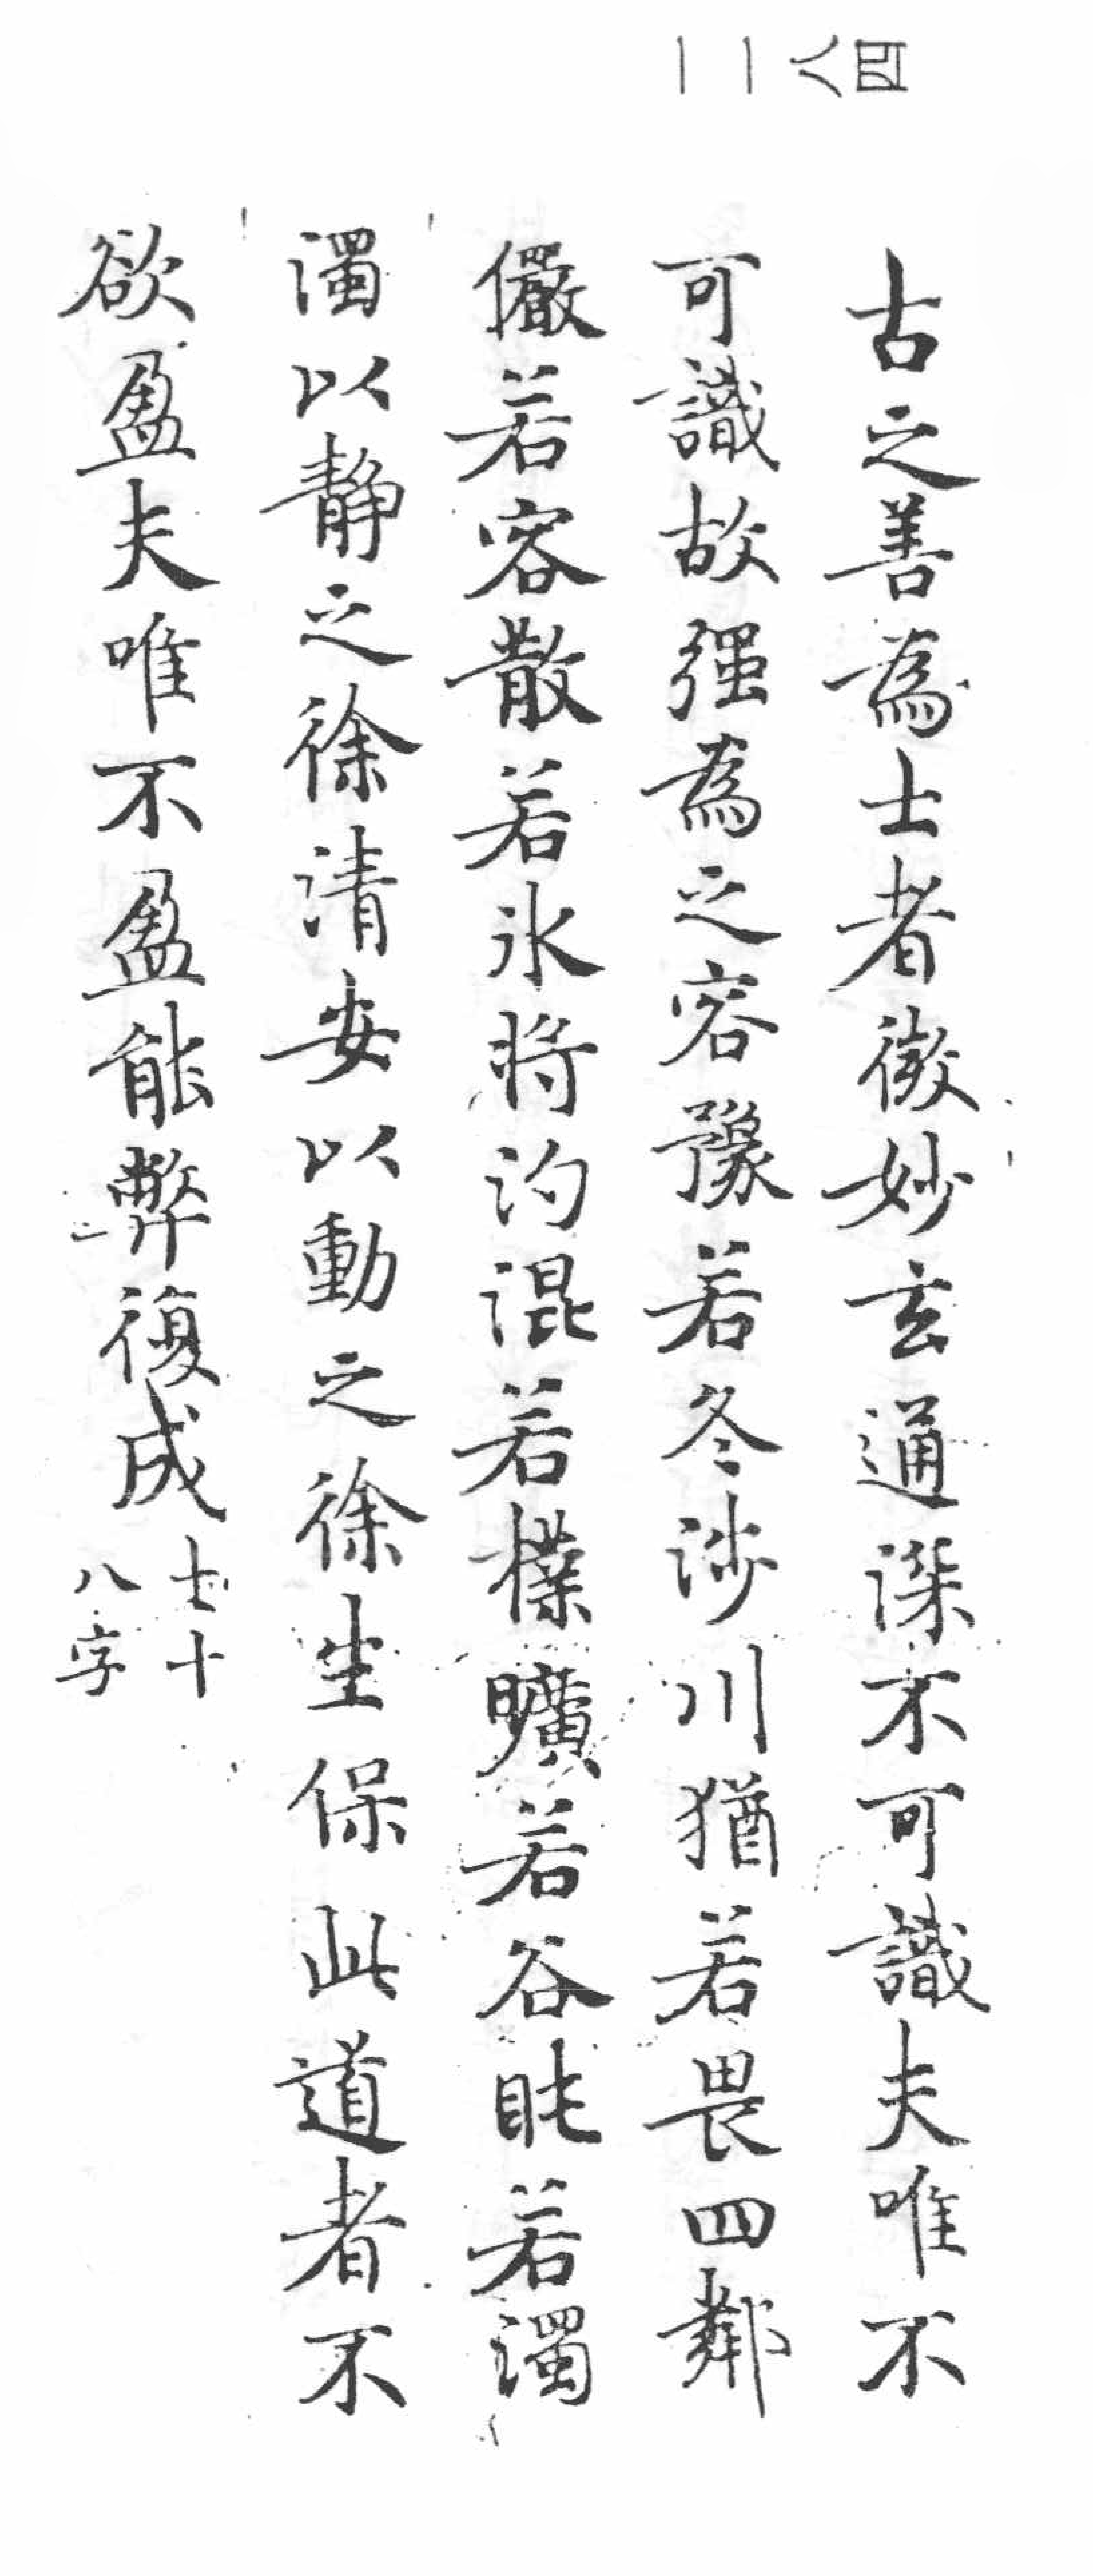 一一八四
古之善為士者微妙玄通深不可識夫唯不
可識故强為之容豫若冬涉川猶若畏四鄰
儼若容散若氷将汋混若樸曠若谷肫若濁
濁以静之徐清安以動之徐生保此道者不
欲盈夫唯不盈能弊復成
七十
八字